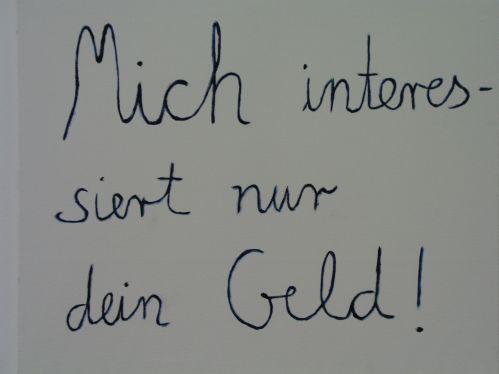 Mich interes-
siert nur
dein Geld!